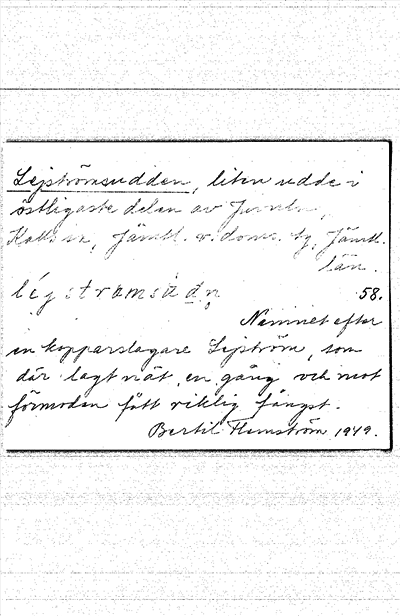 Lejströmsudden, liten udde i
östligaste delen av
Jämtl. v. doms. tg, Jämtl.
län.
58.
Namnet efter
en kopparslagare Lejström, som
där lagt nät en gång och mot
förmodan fått riklig fångst.
Bertil Flemström 1949.